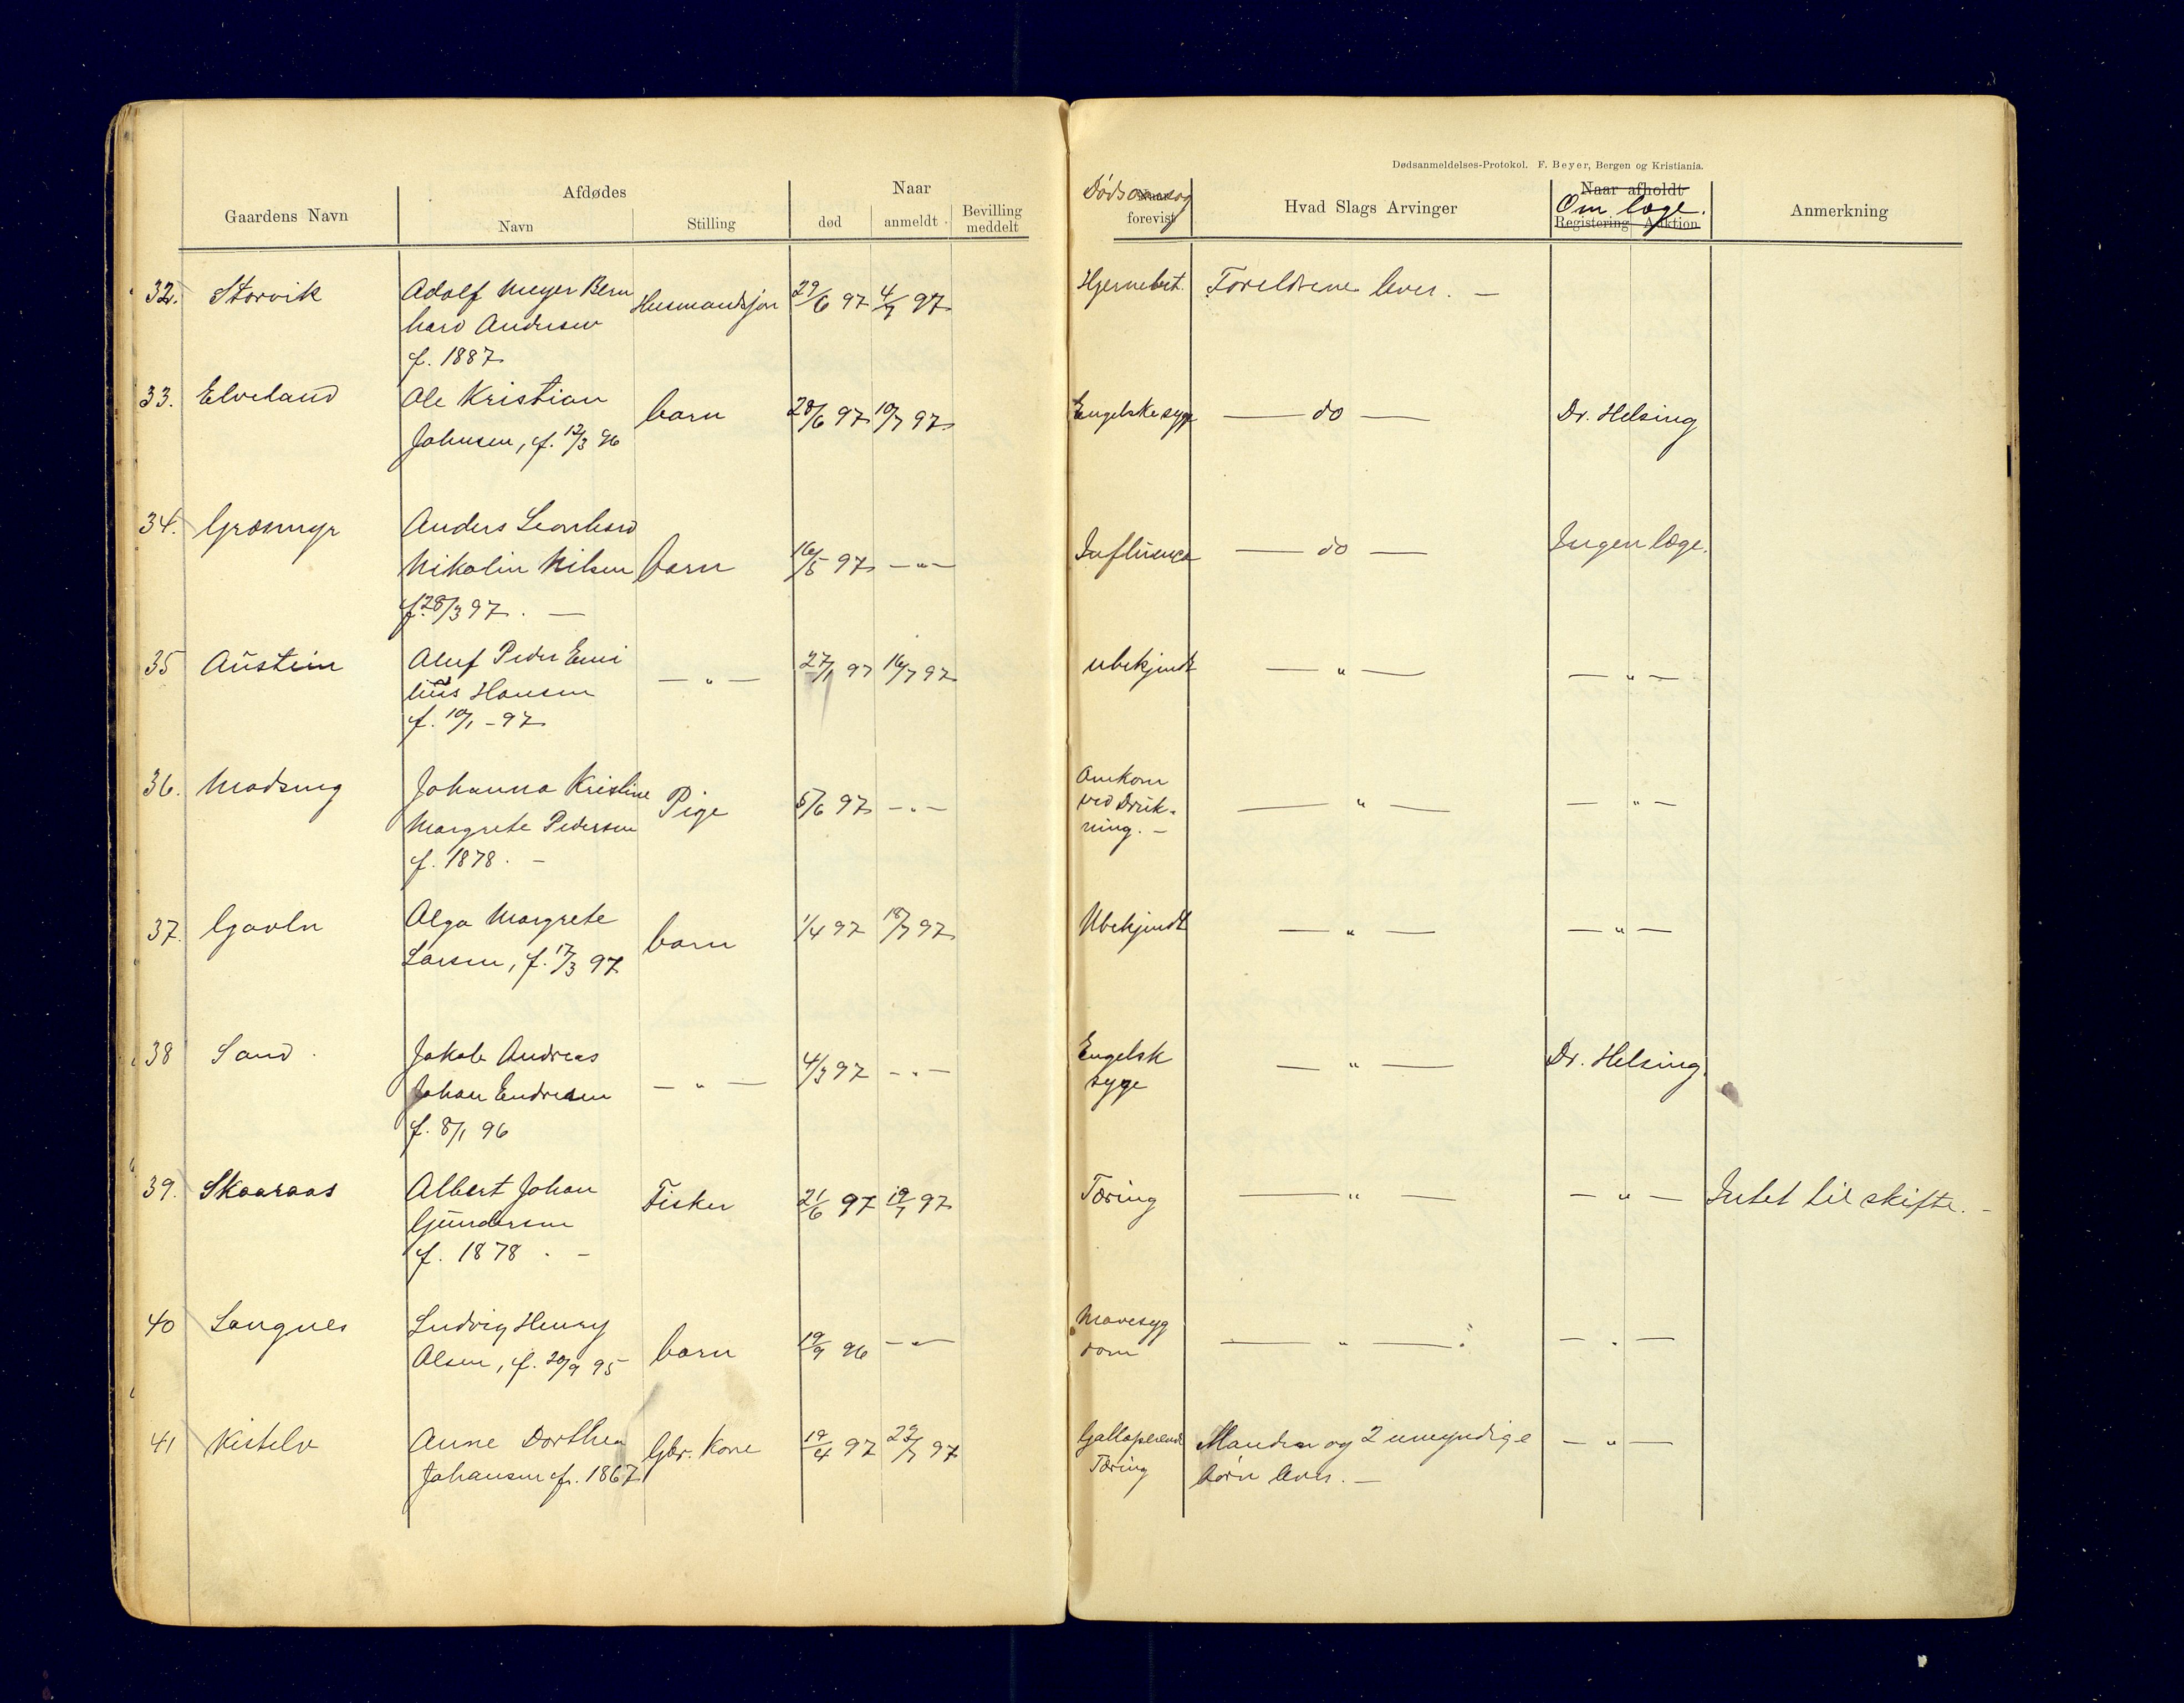 Dødsanmeldelses-Protokol. F. Beyer, Bergen og Kristiania.
Gaardens Navn
Afdødes
Navn
Stilling
Naar
død
anmeldt
Bevilling meddelt
Dødsaarsag
forevist
Hvad Slags Arvinger
Naar afholdt
Om læge.
Registering Auktion
Anmerkning
32. Storvik Adolf Meyer Bern Husmandssøn 29/6 97 4/7 97 Hjernebet. Foreldrene lever. —
hard Andersen
f. 1887
33. Elveland Ole Kristian barn 28/6 97 10/7 97 Engelske syge — do — Dr. Helsing
Johnsen, f. 12/3 96
34. Græsmyr Anders Leonhard
Nikolin Nilsen barn 16/5 97 — " — Influenca — do — Ingen læge.
f. 28/3 97. —
35 Austein Oluf Peder Emi — " — 27/1 97 16/7 97 ubekjendt — " — — " —
lius Hansen
f. 10/1 - 97
36. Modsung Johanna Kristine Pige 5/6 97 — " — Omkom — " — — " —
Margrete Pedersen ved Druk-
f. 1878. — ning. —
37. Gavln Olga Margrete barn 1/4 97 18/7 97 Ubekjendt — " — — " —
Larsen, f. 17/3 97
38 Sand. Jakob Andreas — " — 4/3 97 — " — Engelsk — " — Dr. Helsing.
Johan Endresen syge
f. 8/1 96
39. Skaaraas Albert Johan Fisker 21/6 97 19/7 97 Tæring — " — — " — Intet til skifte. —
Gundersen
f. 1878. —
40 Langnes Ludvig Henry barn 19/9 96 — " — Mavesyg — " — — " —
Olsen, f. 20/9 95 dom
41 Kistelv Anne Dorthea Gbr. Kone 19/4 97 22/7 97 Galloperende Manden og 2 umyndige — " —
Johansen f. 1867 Tæring børn lever. —